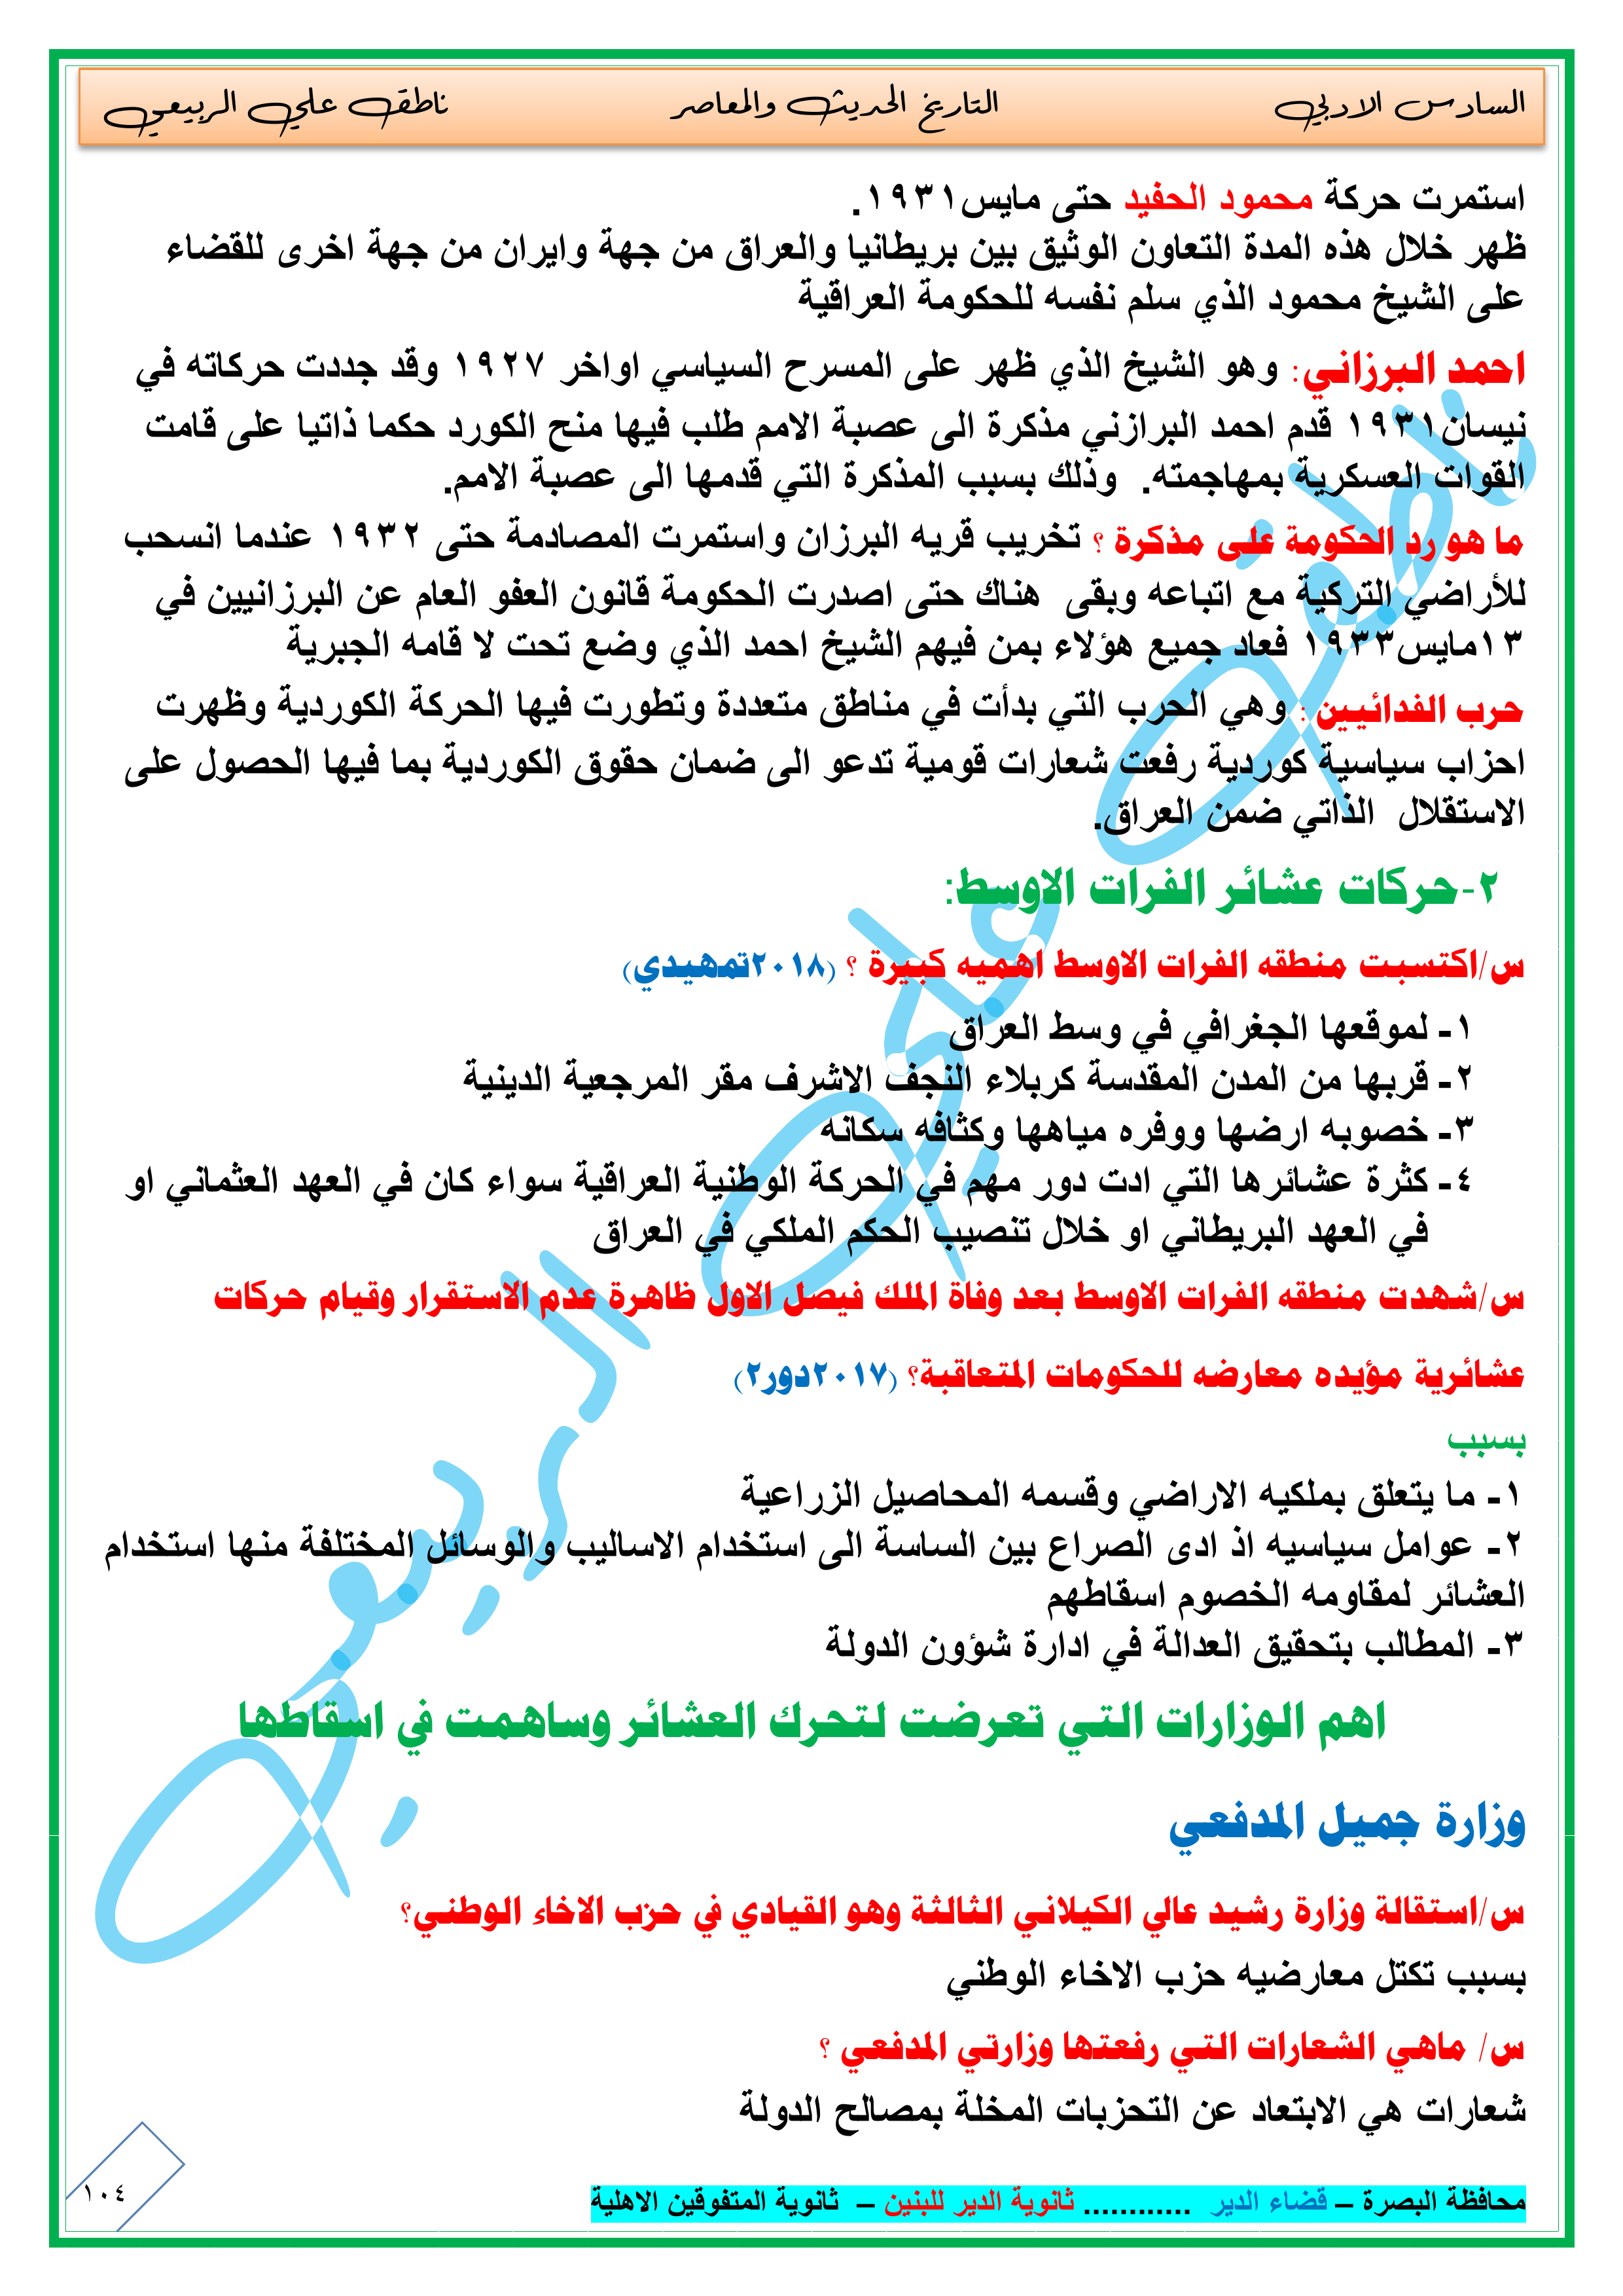 السادس الادبي التاريخ الحديث والمعاصر ناطق علي الربيعي
استمرت حركة محمود الحفيد حتى مايس١٩٣١.
ظهر خلال هذه المدة التعاون الوثيق بين بريطانيا والعراق من جهة وايران من جهة اخرى للقضاء
على الشيخ محمود الذي سلم نفسه للحكومة العراقية
احمد البرزاني: وهو الشيخ الذي ظهر على المسرح السياسي اواخر ١٩٢٧ وقد جددت حركاته في
نيسان١٩٣١ قدم احمد البرازني مذكرة الى عصبة الامم طلب فيها منح الكورد حكما ذاتيا على قامت
القوات العسكرية بمهاجمته. وذلك بسبب المذكرة التي قدمها الى عصبة الامم.
ما هو رد الحكومة على مذكرة ؟ تخريب قريه البرزان واستمرت المصادمة حتى ١٩٣٢ عندما انسحب
للأراضي التركية مع اتباعه وبقى هناك حتى اصدرت الحكومة قانون العفو العام عن البرزانيين في
١٣مايس١٩٣٣ فعاد جميع هؤلاء بمن فيهم الشيخ احمد الذي وضع تحت لا قامه الجبرية
حرب الفدائيين : وهي الحرب التي بدأت في مناطق متعددة وتطورت فيها الحركة الكوردية وظهرت
احزاب سياسية كوردية رفعت شعارات قومية تدعو الى ضمان حقوق الكوردية بما فيها الحصول على
الاستقلال الذاتي ضمن العراق.
٢-حركات عشائر الفرات الاوسط:
س/اكتسبت منطقه الفرات الاوسط اهميه كبيرة ؟ (٢٠١٨تمهيدي)
١- لموقعها الجغرافي في وسط العراق
٢- قربها من المدن المقدسة كربلاء النجف الاشرف مقر المرجعية الدينية
٣- خصوبه ارضها ووفره مياهها وكثافه سكانه
٤- كثرة عشائرها التي ادت دور مهم في الحركة الوطنية العراقية سواء كان في العهد العثماني او
في العهد البريطاني او خلال تنصيب الحكم الملكي في العراق
س/شهدت منطقه الفرات الاوسط بعد وفاة الملك فيصل الاول ظاهرة عدم الاستقرار وقيام حركات
عشائرية مؤيده معارضه للحكومات المتعاقبة؟ (٢٠١٧دور٢)
بسبب
١- ما يتعلق بملكيه الاراضي وقسمه المحاصيل الزراعية
٢- عوامل سياسيه اذ ادى الصراع بين الساسة الى استخدام الاساليب والوسائل المختلفة منها استخدام
العشائر لمقاومه الخصوم اسقاطهم
٣- المطالب بتحقيق العدالة في ادارة شؤون الدولة
اهم الوزارات التي تعرضت لتحرك العشائر وساهمت في اسقاطها
وزارة جميل المدفعي
س/استقالة وزارة رشيد عالي الكيلاني الثالثة وهو القيادي في حزب الاخاء الوطني؟
بسبب تكتل معارضيه حزب الاخاء الوطني
س/ ماهي الشعارات التي رفعتها وزارتي المدفعي ؟
شعارات هي الابتعاد عن التحزبات المخلة بمصالح الدولة
محافظة البصرة – قضاء الدير ............ ثانوية الدير للبنين – ثانوية المتفوقين الاهلية
١٠٤
ناطق علي الربيعي